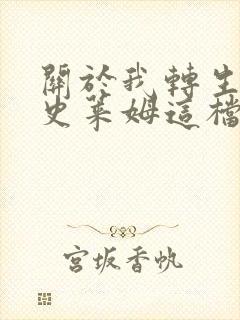 關於我轉生
史萊姆這檔
宮坂香帆